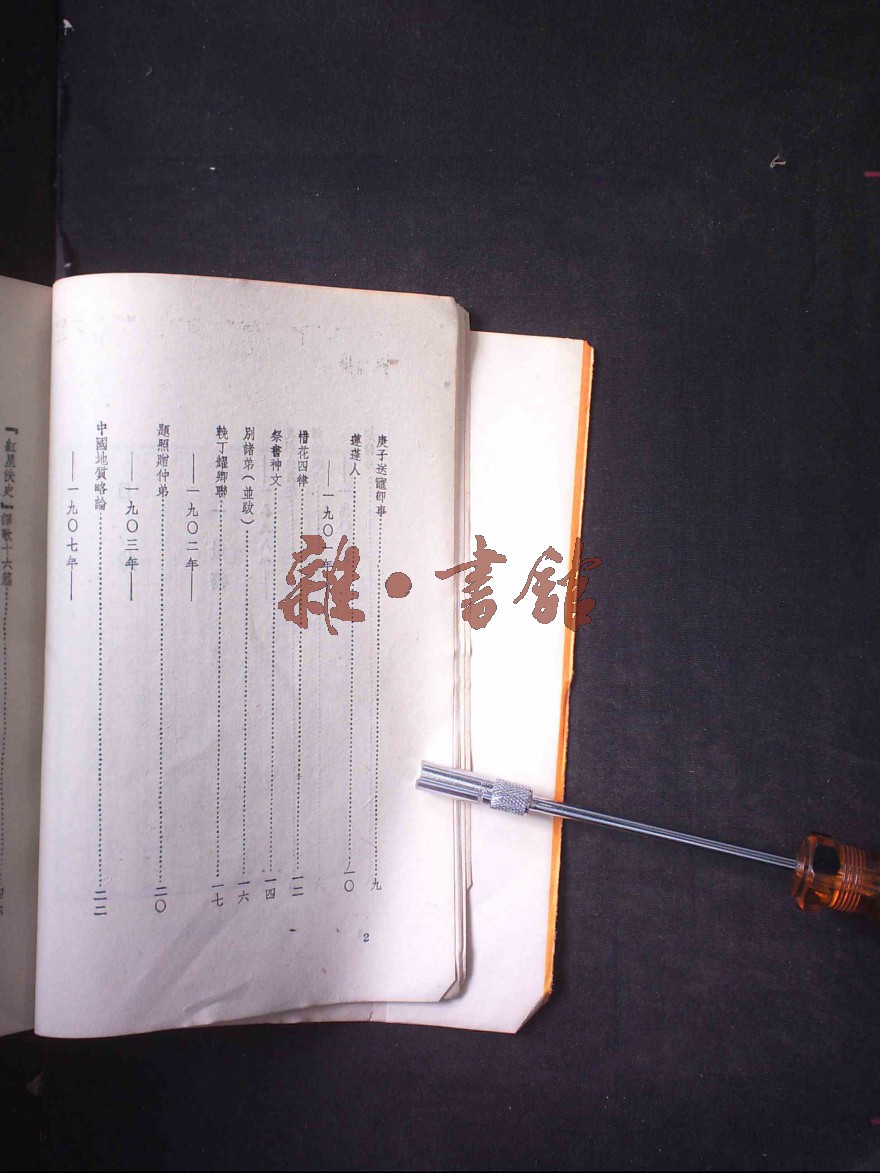 庚子送竈卽事……九
蓮蓬人……一〇
——一九〇一年——
惜花四律……一二
祭書神文……一四
別諸弟（並跋）……一六
輓丁耀卿聯……一七
——一九〇二年——
題照贈仲弟……二〇
——一九〇三年——
中國地質略論……二二
——一九〇七年——
2
『紅星佚史』譯歌十六篇……
雜·書館